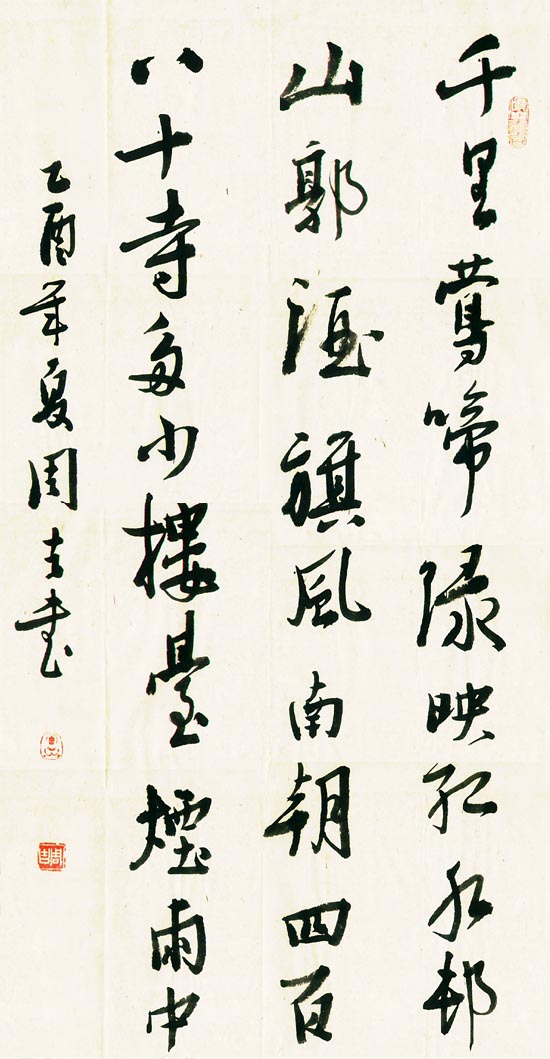 千里鶯啼綠映紅水邨
山郭酒旗風南朝四百
八十寺多少樓臺煙雨中
乙酉年夏周吉書
周吉